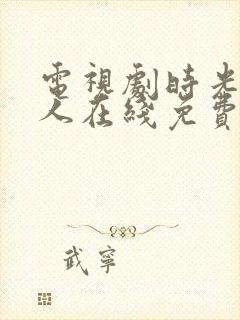 電視劇時光
人在綫免費
武寧